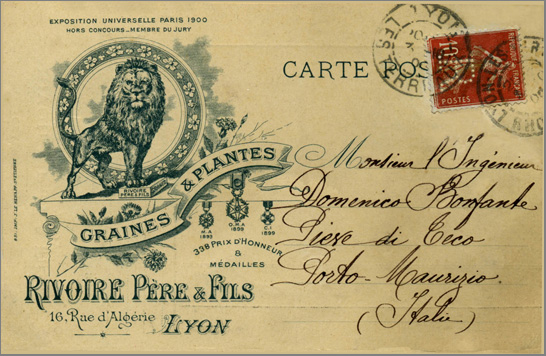 EXPOSITION UNIVERSELLE PARIS 1900
HORS CONCOURS_MEMBRE DU JURY
CARTE POS
LYON
RIVOIRE
PÈRE & FILS
GRAINES & PLANTES
M.A
1899
G.M.A
1899
C.I
1899
338 PRIX D'HONNEUR
&
MÉDAILLES
RIVOIRE PÈRE & FILS
16, Rue d'Algérie LYON
POSTES
Monsieur l'Ingénieur
Domenico Bonfante
Pieve di Teco
Porto-Maurizio
(Italie)